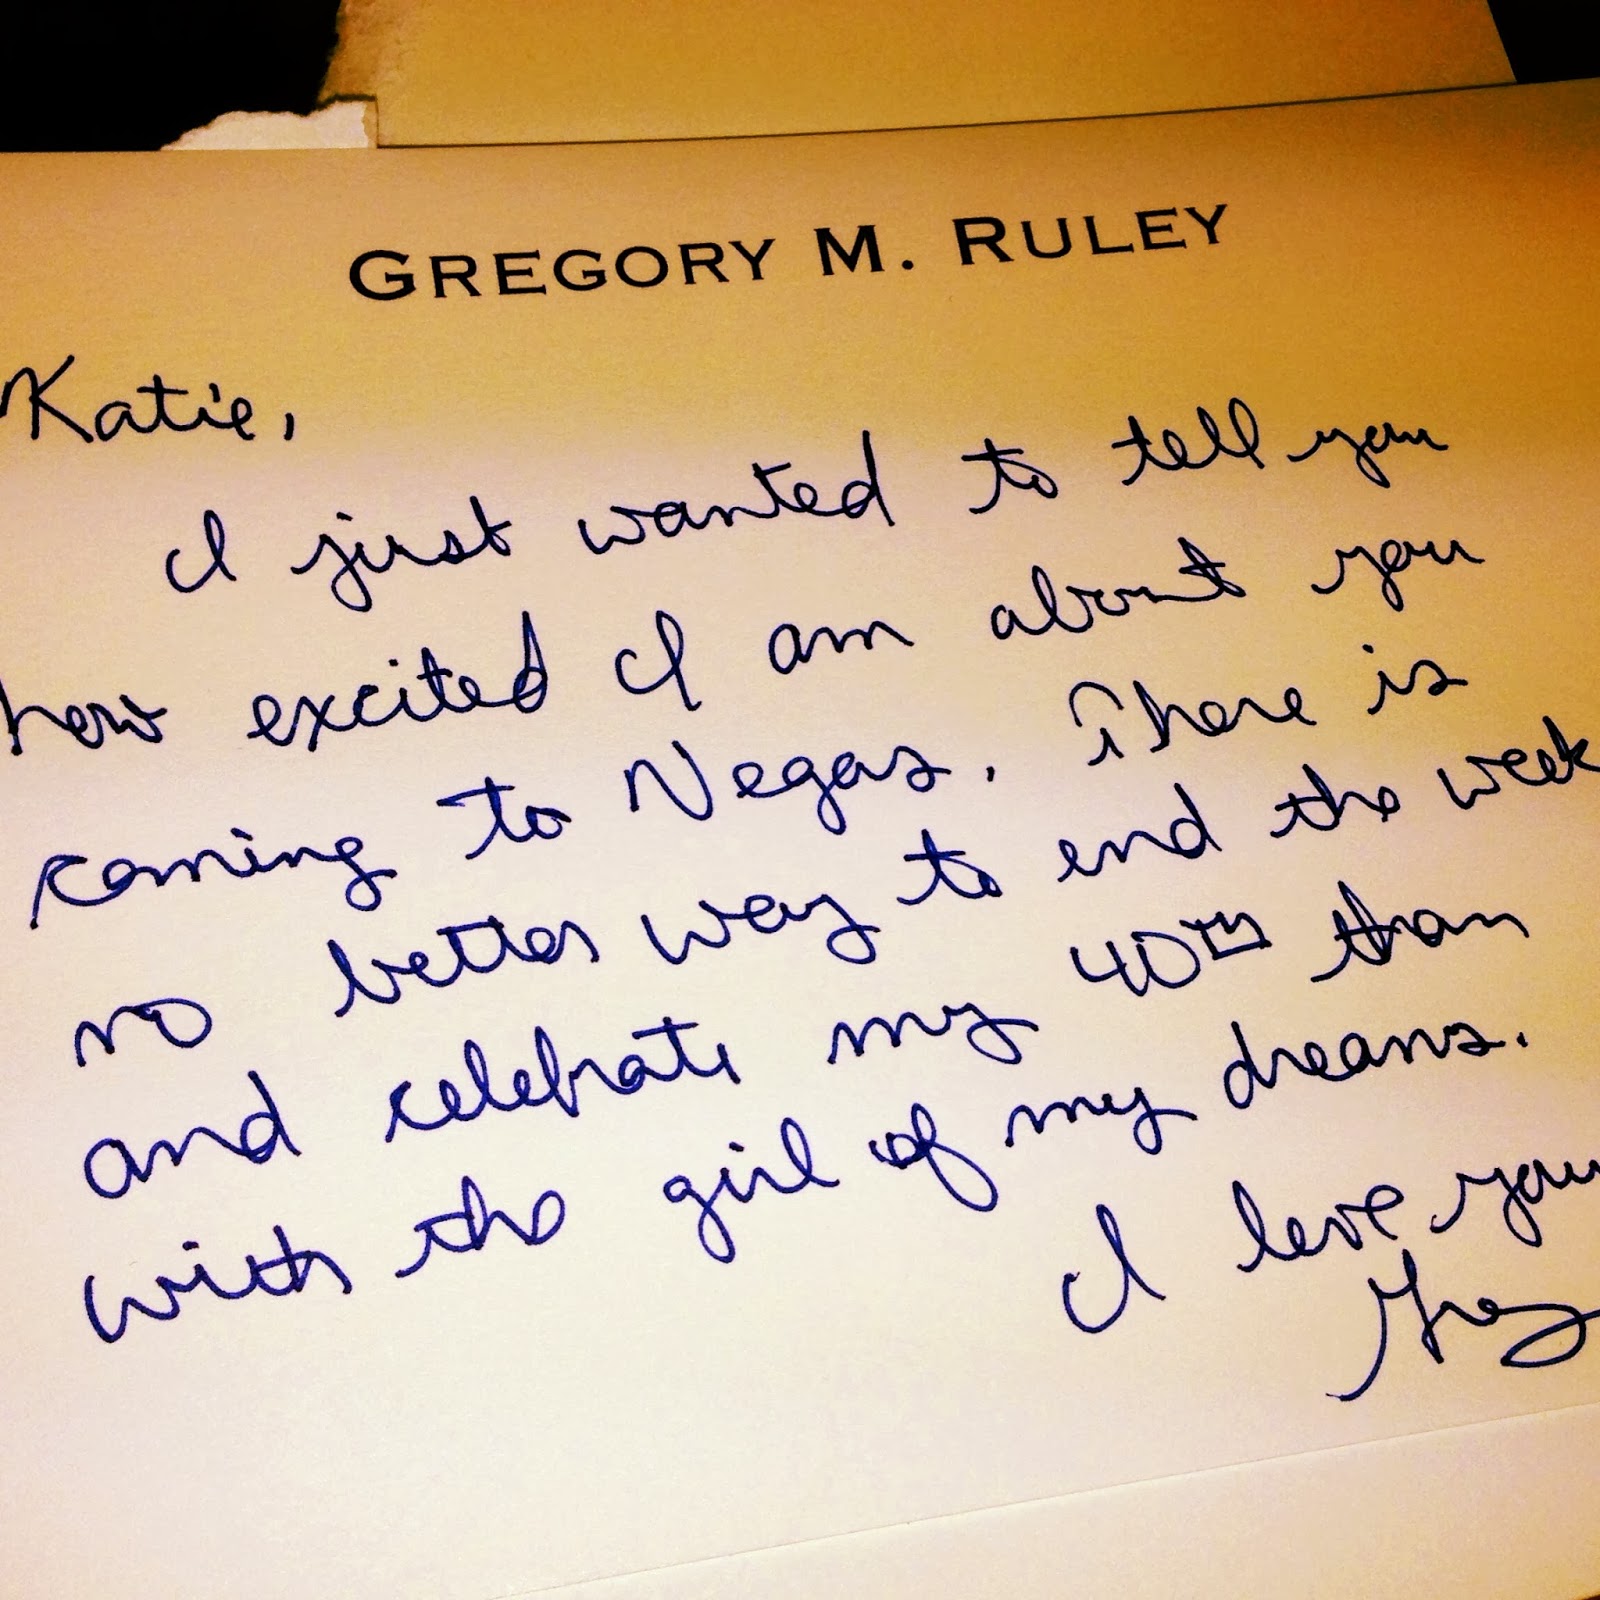 GREGORY M. RULEY
Katie,
I just wanted to tell you
how excited I am about you
coming to Vegas. There is
no better way to end the week
and celebrate my 40th than
with the girl of my dreams.
I love you
Greg